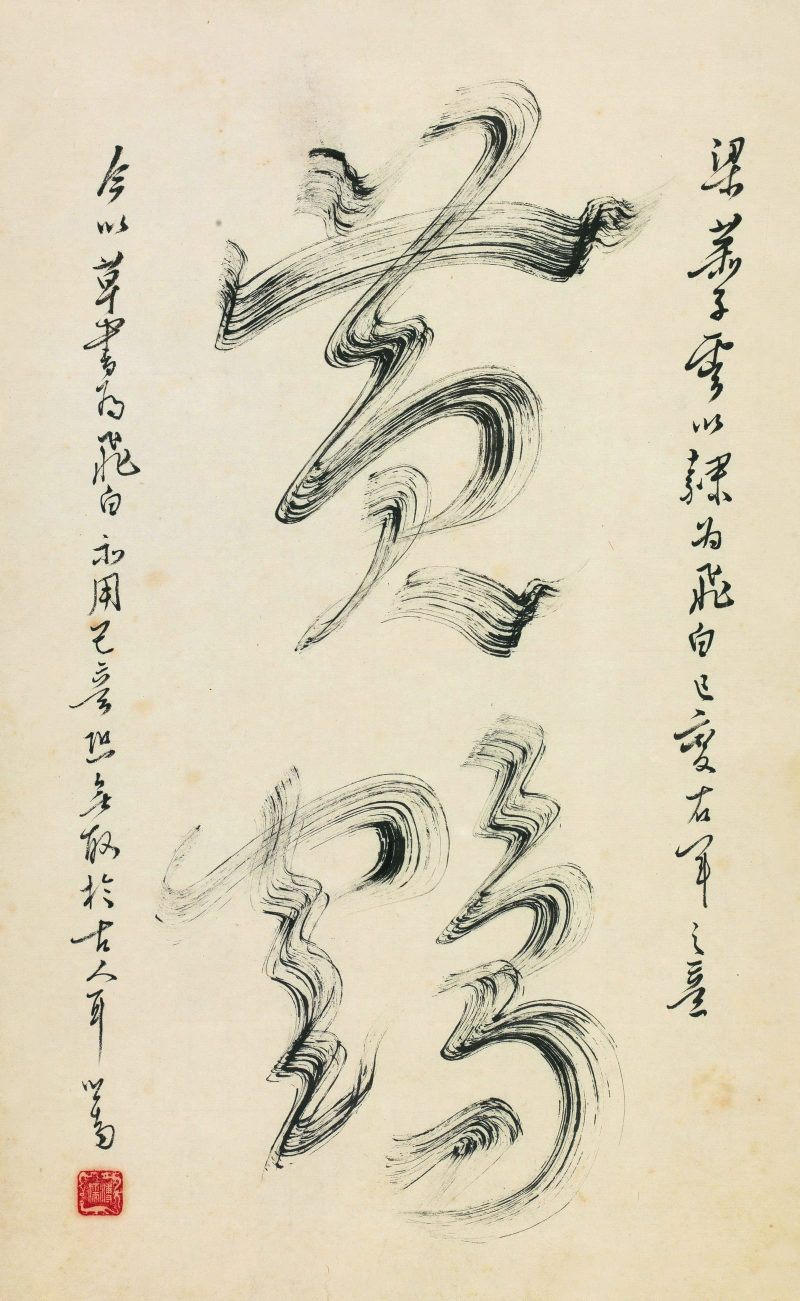 梁蕭子雲以隸為飛白已變右軍之意
黃鶴
今以草書為飛白亦用己意恐無取於古人耳 心畬
溥儒